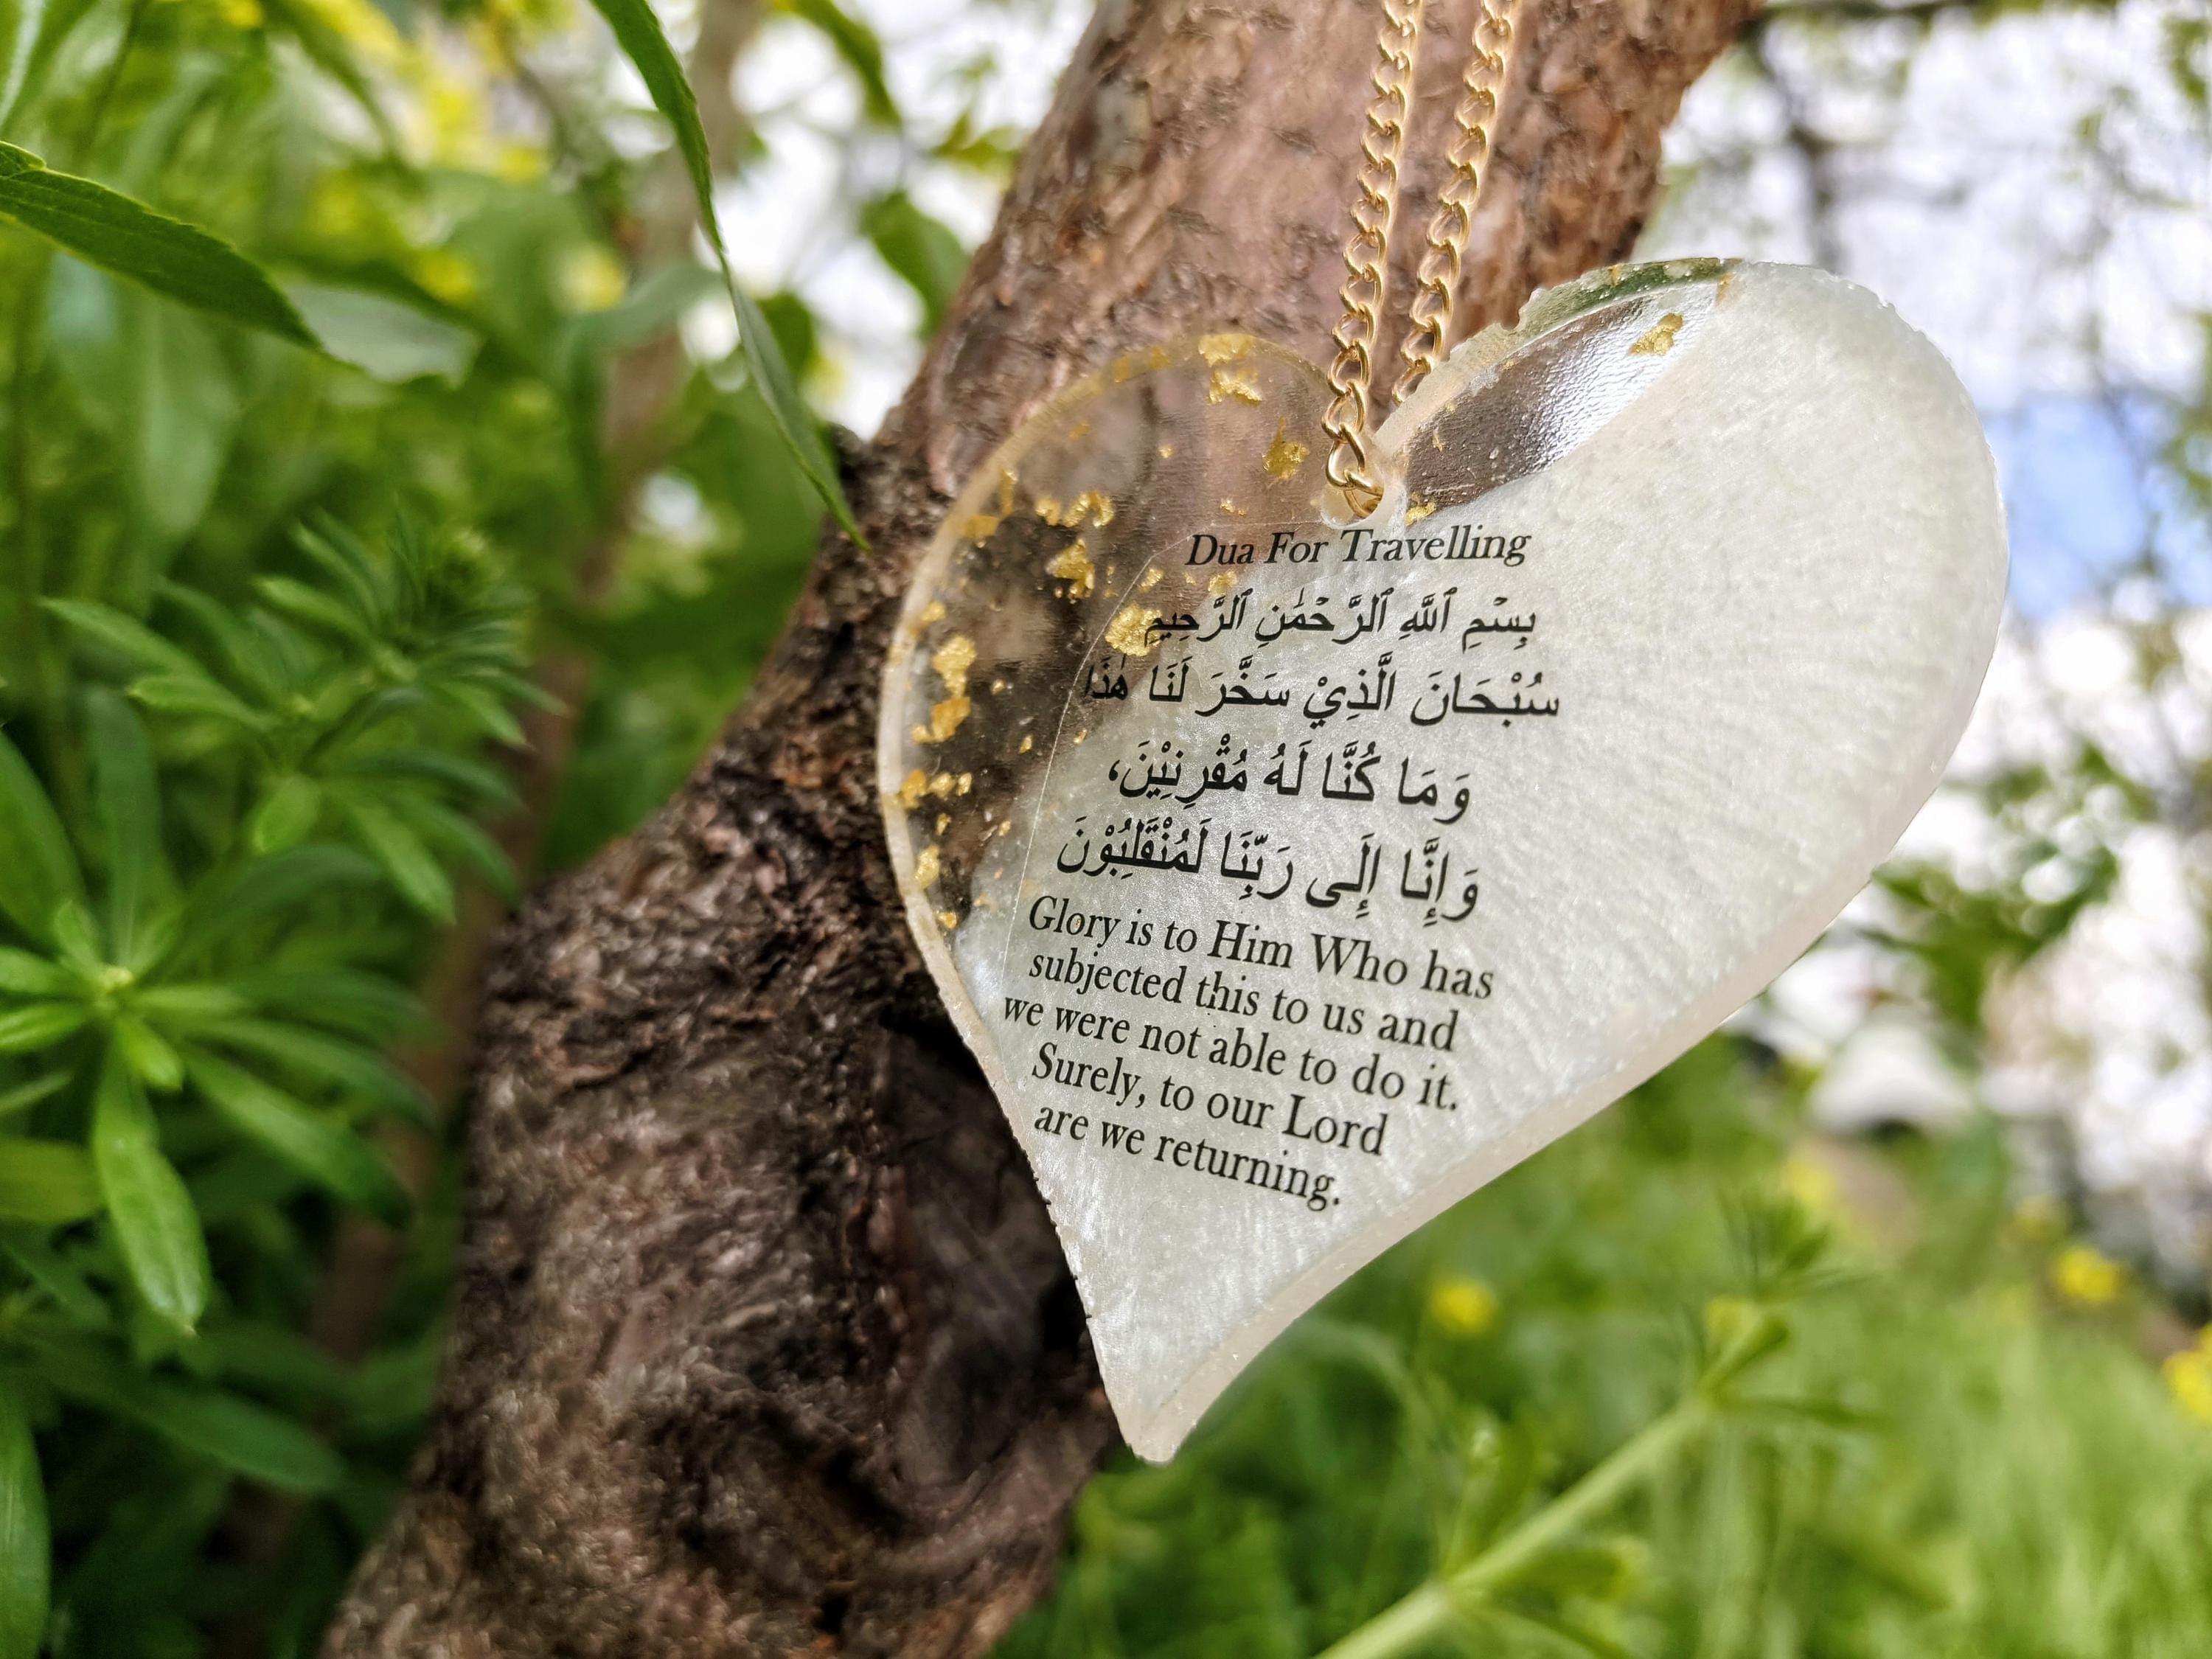 Dua For Travelling
بِسْمِ ٱللَّهِ ٱلرَّحْمَٰنِ ٱلرَّحِيمِ
سُبْحَانَ الَّذِيْ سَخَّرَ لَنَا هٰذَا
وَمَا كُنَّا لَهُ مُقْرِنِيْنَ،
وَإِنَّا إِلَى رَبِّنَا لَمُنْقَلِبُوْنَ
Glory is to Him Who has
subjected this to us and
we were not able to do it.
Surely, to our Lord
are we returning.